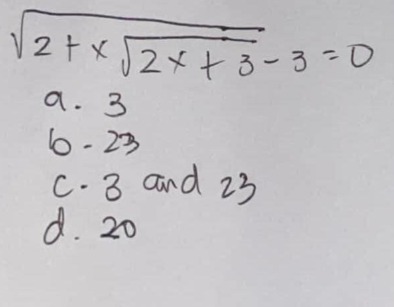 √2+x√2x+3-3=0
a. 3
b-23
c-3 and 23
d. 20